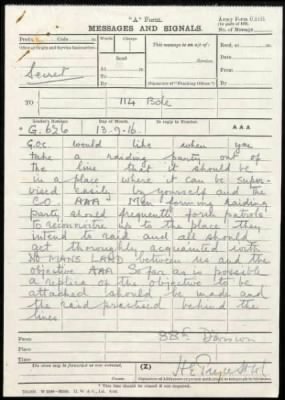 "A" Form.
MESSAGES AND SIGNALS.
Army Form C.2121
No. of Message
Prefix Code m.
Words
Charge
Office of Origin and Service Instructions.
This message is on a/c of:
Secret
Sent
At m.
To
By
Service.
Date
From
By
TO
114 Bde
Sender's Number
Day of Month
In reply to Number
AAA
G.626
13-9-16
G.O.C. would like when you
take a raiding party out of
the line that it should be
in a place where it can be super-
vised easily by yourself and the
C.O. AAA Men forming raiding
party should frequently form patrols
to reconnoitre up to the place they
intend to raid and all should
get thoroughly acquainted with
NO MANS LAND between us and the
objective AAA So far as is possible
a replica of the objective to be
attached should be made and
the raid practised behind the
lines
From
38th Division
Place
Time
The above may be forwarded as now corrected.
(Z)